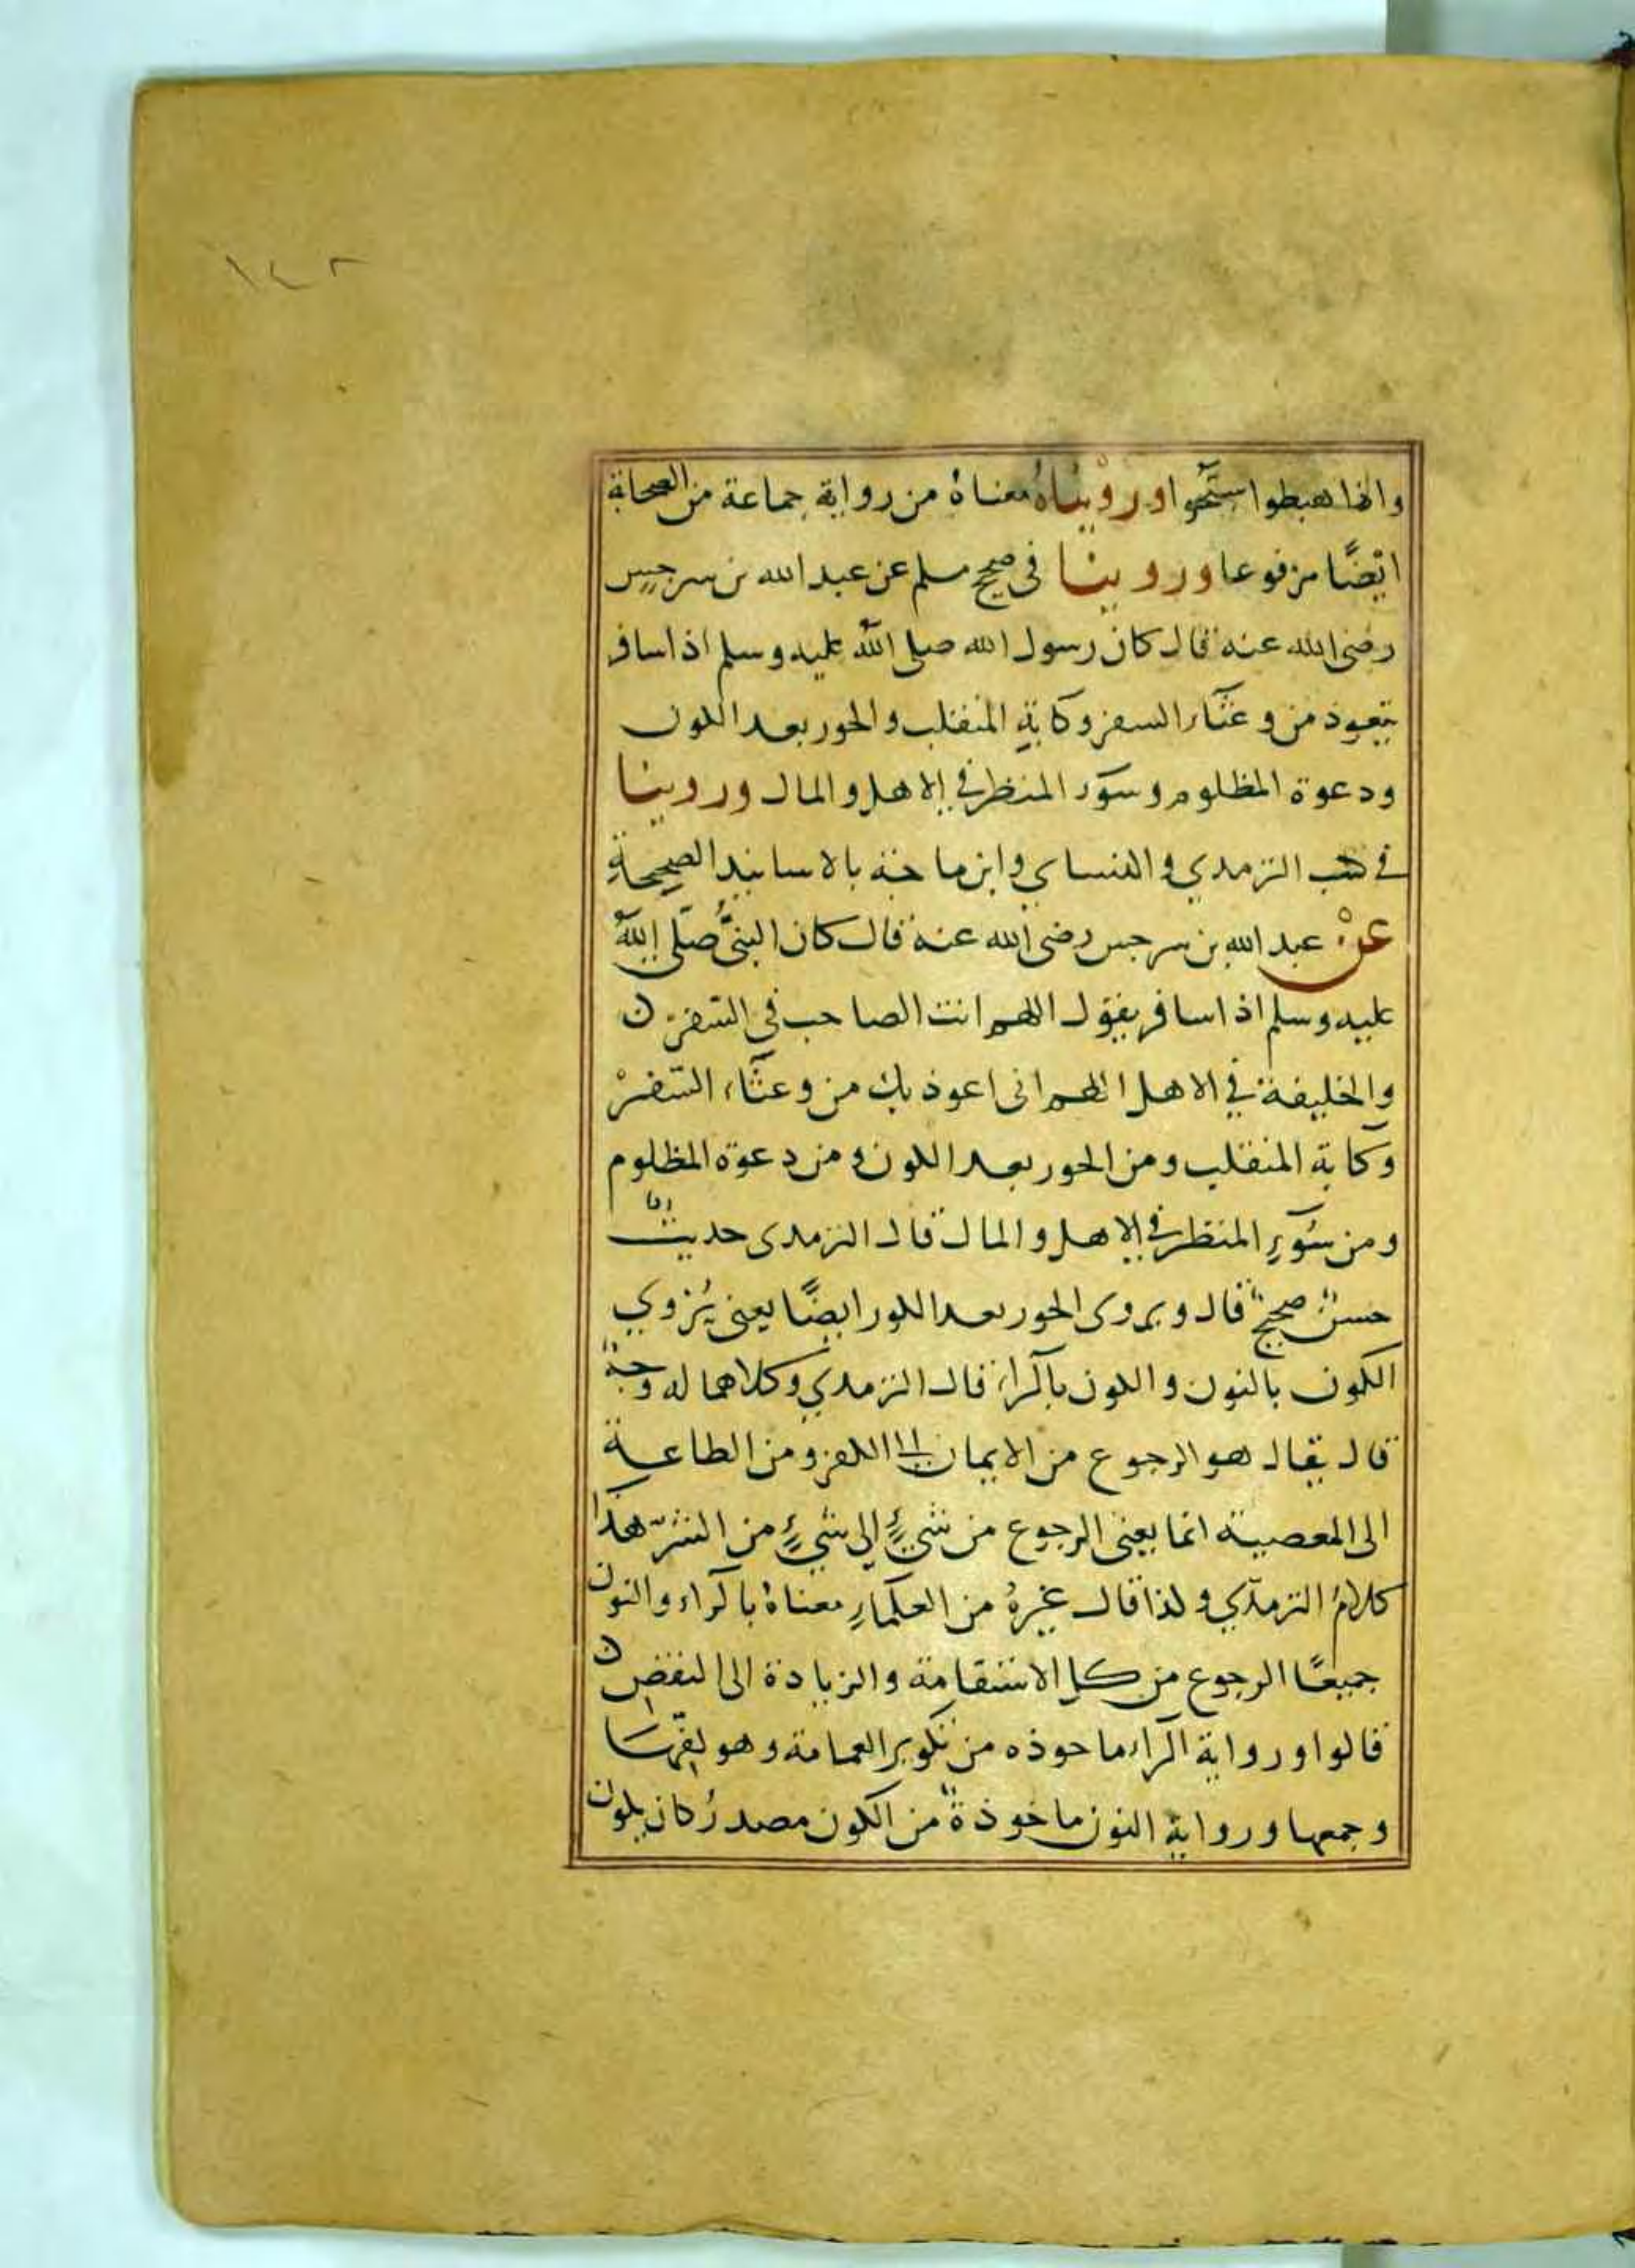 ١٤٢
واذا هبطوا سبحوا ورويناه معناه من رواية جماعة من الصحابة
ايضًا مرفوعا وروينا في صحيح مسلم عن عبد الله بن سرجس
رضي الله عنه قال كان رسول الله صلى الله عليه وسلم اذا سافر
يتعوذ من وعثاء السفر وكابة المنقلب والحور بعد الكون
ودعوة المظلوم وسوء المنظر في الاهل والمال وروينا
في كتب الترمذي والنساي وابن ماجة بالاسانيد الصحيحة
عن عبد الله بن سرجس رضي الله عنه قال كان النبي صلى الله
عليه وسلم اذا سافر يقول اللهم انت الصاحب في السفر
والخليفة في الاهل اللهم اني اعوذ بك من وعثاء السفر
وكابة المنقلب ومن الحور بعد الكون ومن دعوة المظلوم
ومن سوء المنظر في الاهل والمال قال الترمذي حديث
حسن صحيح قال ويروى الحور بعد الكور ايضًا يعني يروي
الكون بالنون والكون بالراء قال الترمذي وكلاهما له وجه
قال يقال هو الرجوع من الايمان الى الكفر ومن الطاعة
الى المعصية انما يعني الرجوع من شيء إلى شيء من الشر هذا
كلام الترمذي ولذا قال غيره من العلماء معناه بالراء والنون
جميعًا الرجوع من الاستقامة والزيادة الى النقض
قالوا ورواية الراء ماخوذه من تكوير العمامة وهو لفها
وجمعها ورواية النون ماخوذة من الكون مصدر كان يكون